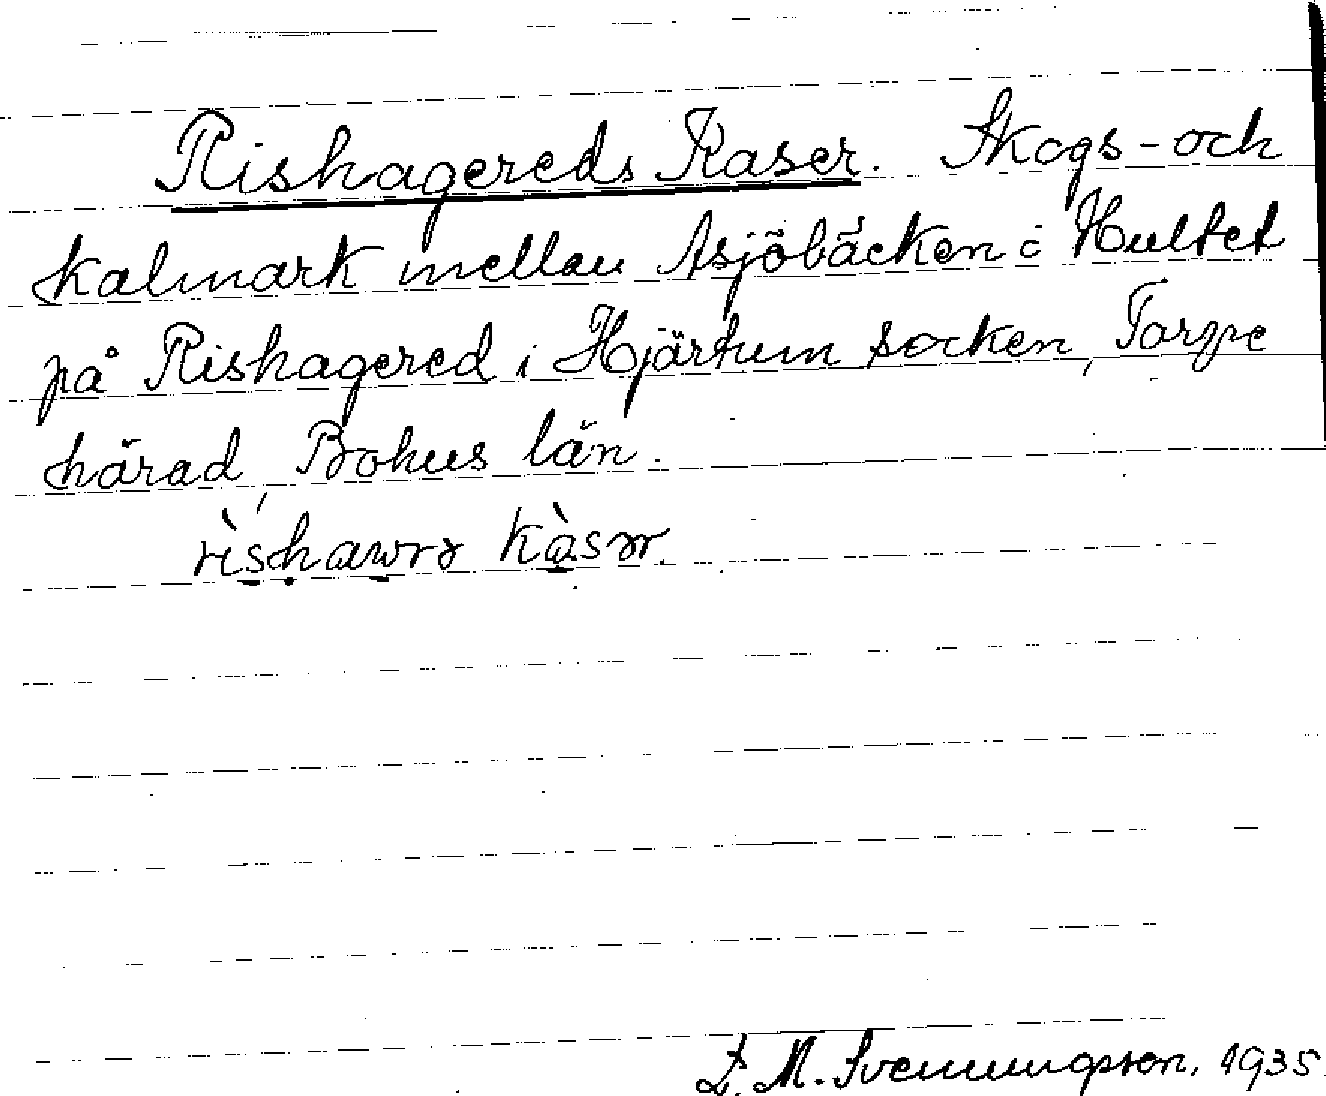 Rishagereds Kaser. Skogs- och
kalmark mellan Åsjöbäcken i Hultet
på Rishagered i Hjärtum socken, Torpe
härad, Bohus län.
L. M. Svenungsson, 1935